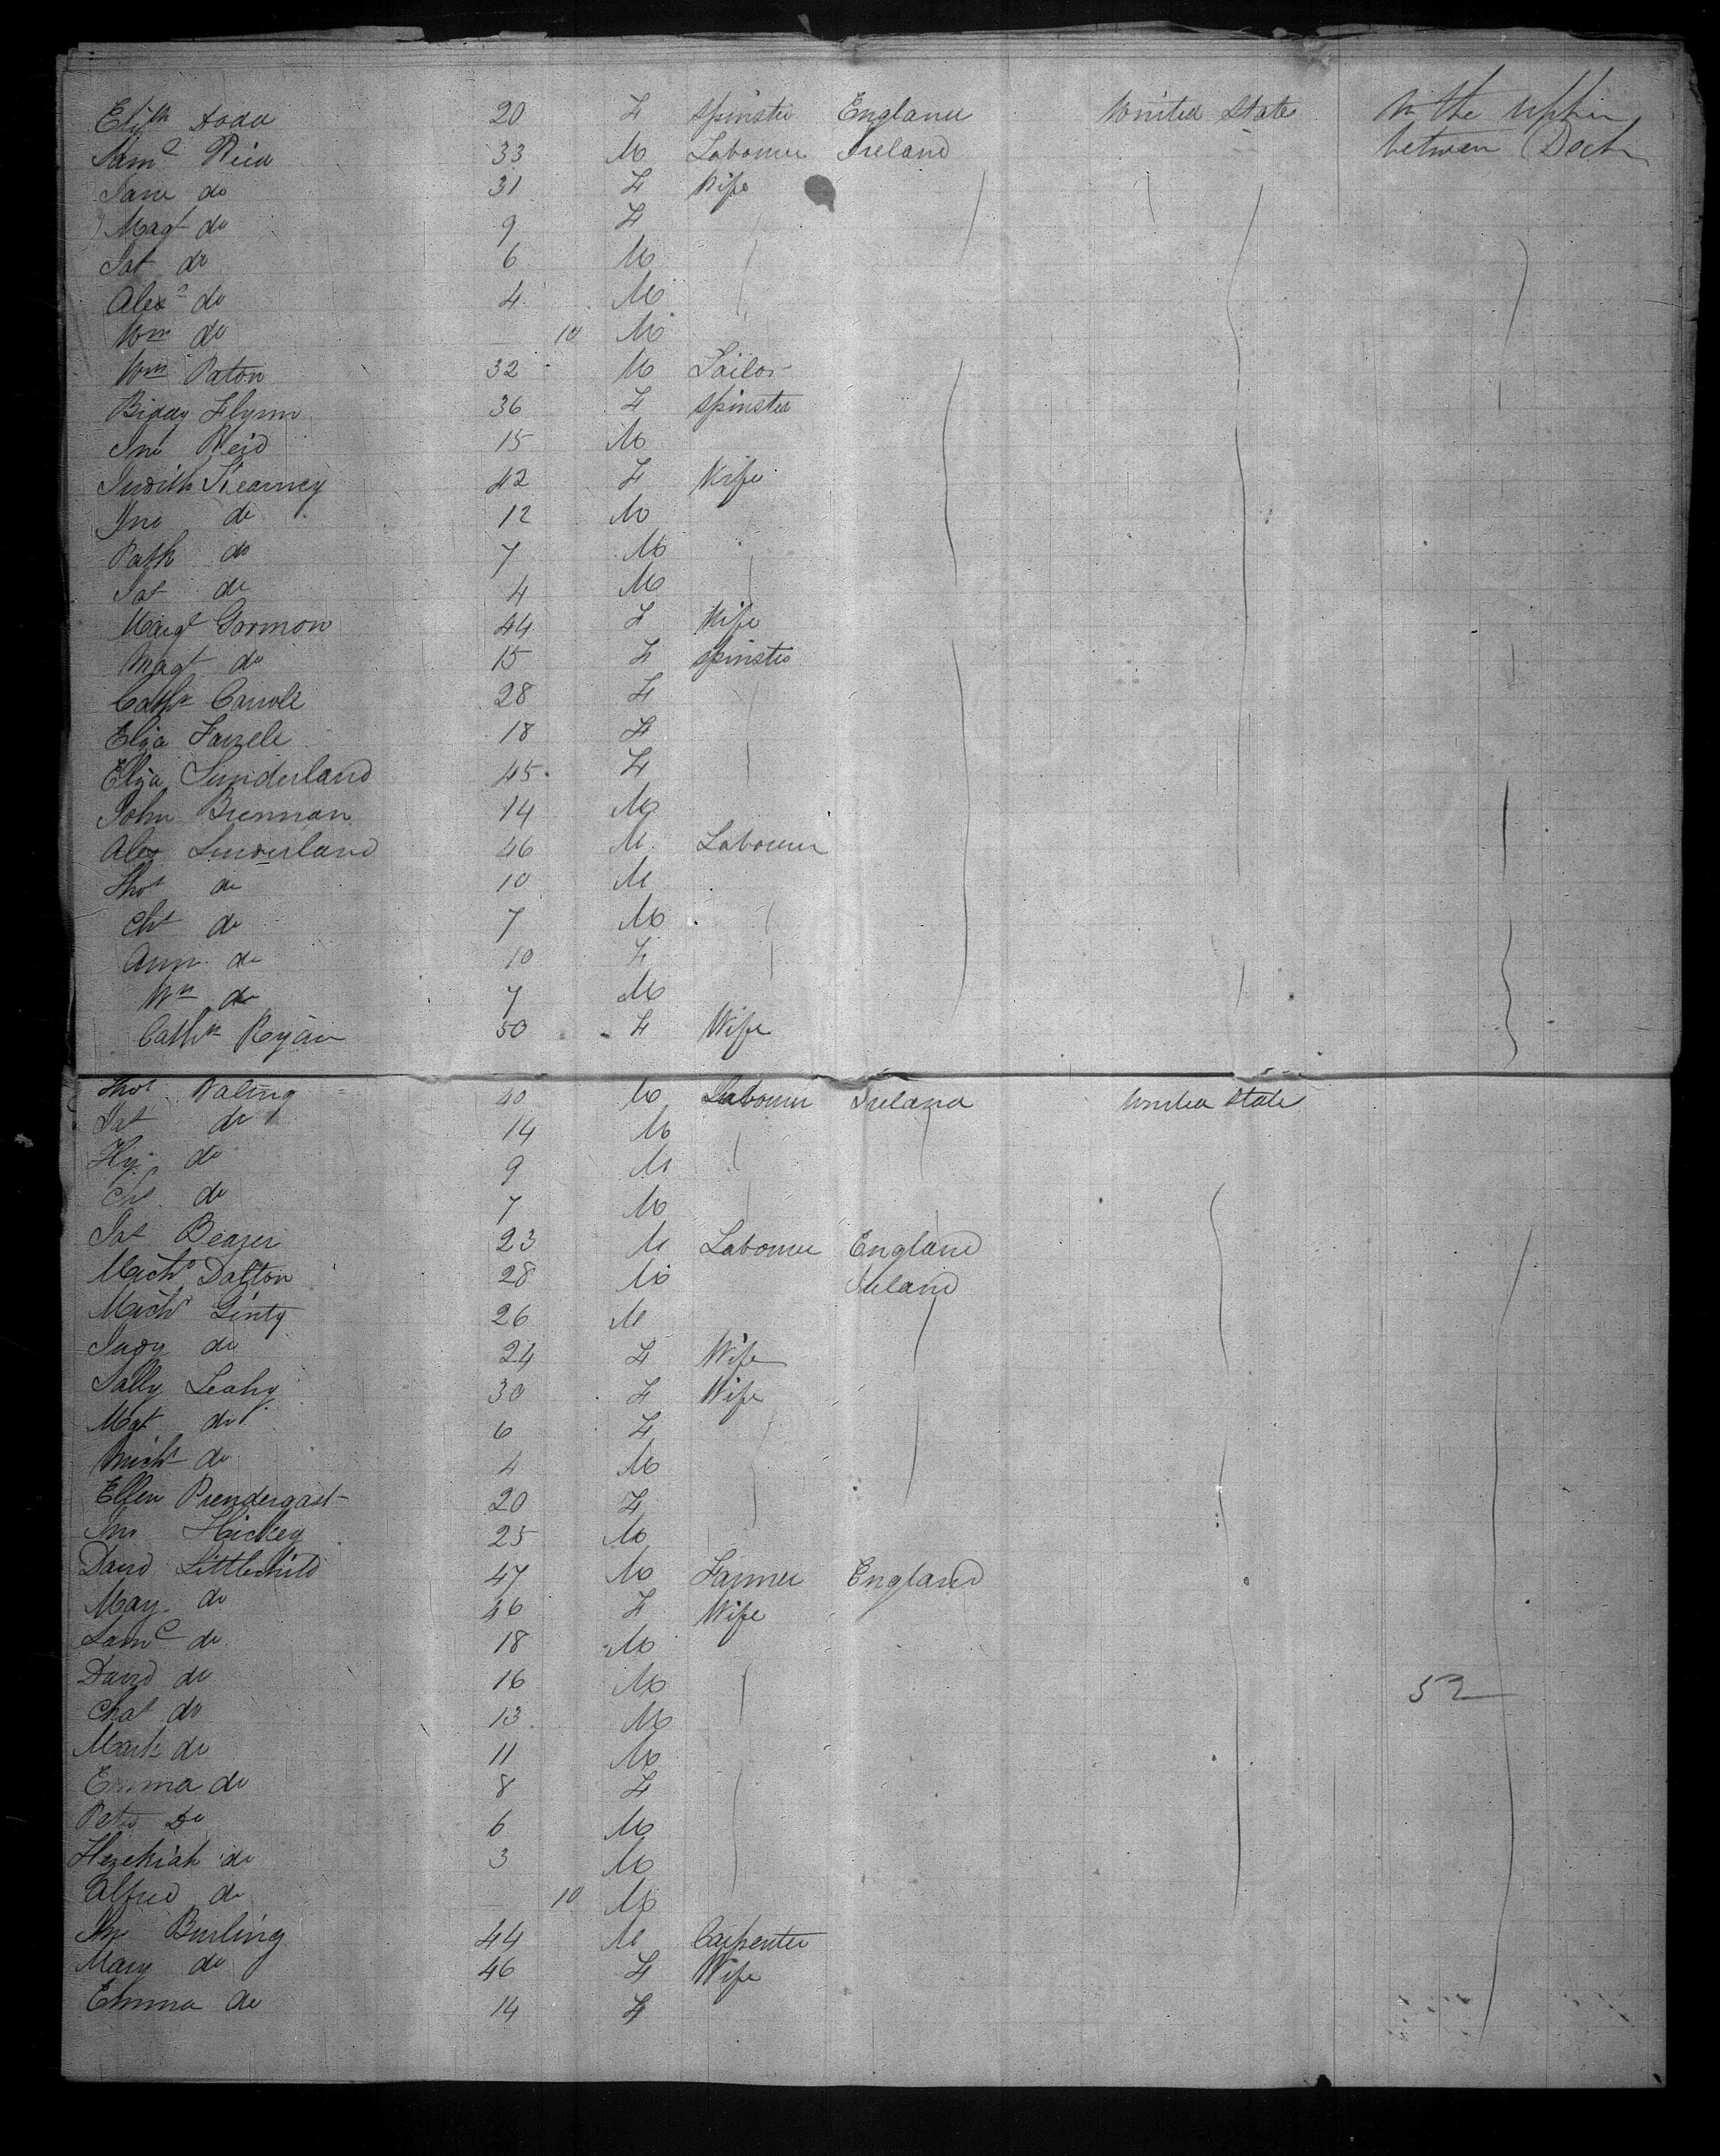 Elizth Dodd 20 F Spinster England United States In the upper
Saml Reid 33 M Labourer Ireland between Decks
Jane do 31 F Wife
Magt do 9 F
Jas do 6 M
Alexr do 4 M
Wm do 10 M
Wm Paton 32 M Tailor
Biddy Flynn 36 F Spinster
Jno Reid 15 M
Judith Kearney 42 F Wife
Jno do 12 M
Patk do 7 M
Jas do 4 M
Margt Gormon 44 F Wife
Magt do 15 F Spinster
Cathn Carroll 28 F
Eliza Farrell 18 F
Eliza Sunderland 45 F
John Brennan 14 M
Alex Sunderland 46 M Labourer
Thos do 10 M
Chs do 7 M
Ann do 10 F
Wm do 7 M
Cathn Ryan 50 F Wife
Thos Waling 40 M Labourer Ireland United States
Jas do 14 M
Hy do 9 M
Chs do 7 M
Jas Beazer 23 M Labourer England
Michl Dalton 28 M Ireland
Michl Ginty 26 M
Judy do 24 F Wife
Sally Leahy 30 F Wife
Mgt do 6 F
Michl do 4 M
Ellen Prendergast 20 F
Jno Hickey 25 M
David Littlechild 47 M Farmer England
Mary do 46 F Wife
Saml do 18 M
David do 16 M 52
Chas do 13 M
Mark do 11 M
Emma do 8 F
Peter Do 6 M
Hezekiah do 3 M
Alfred do 10 M
Burling 44 M Carpenter
Mary do 46 F Wife
Emma do 14 F